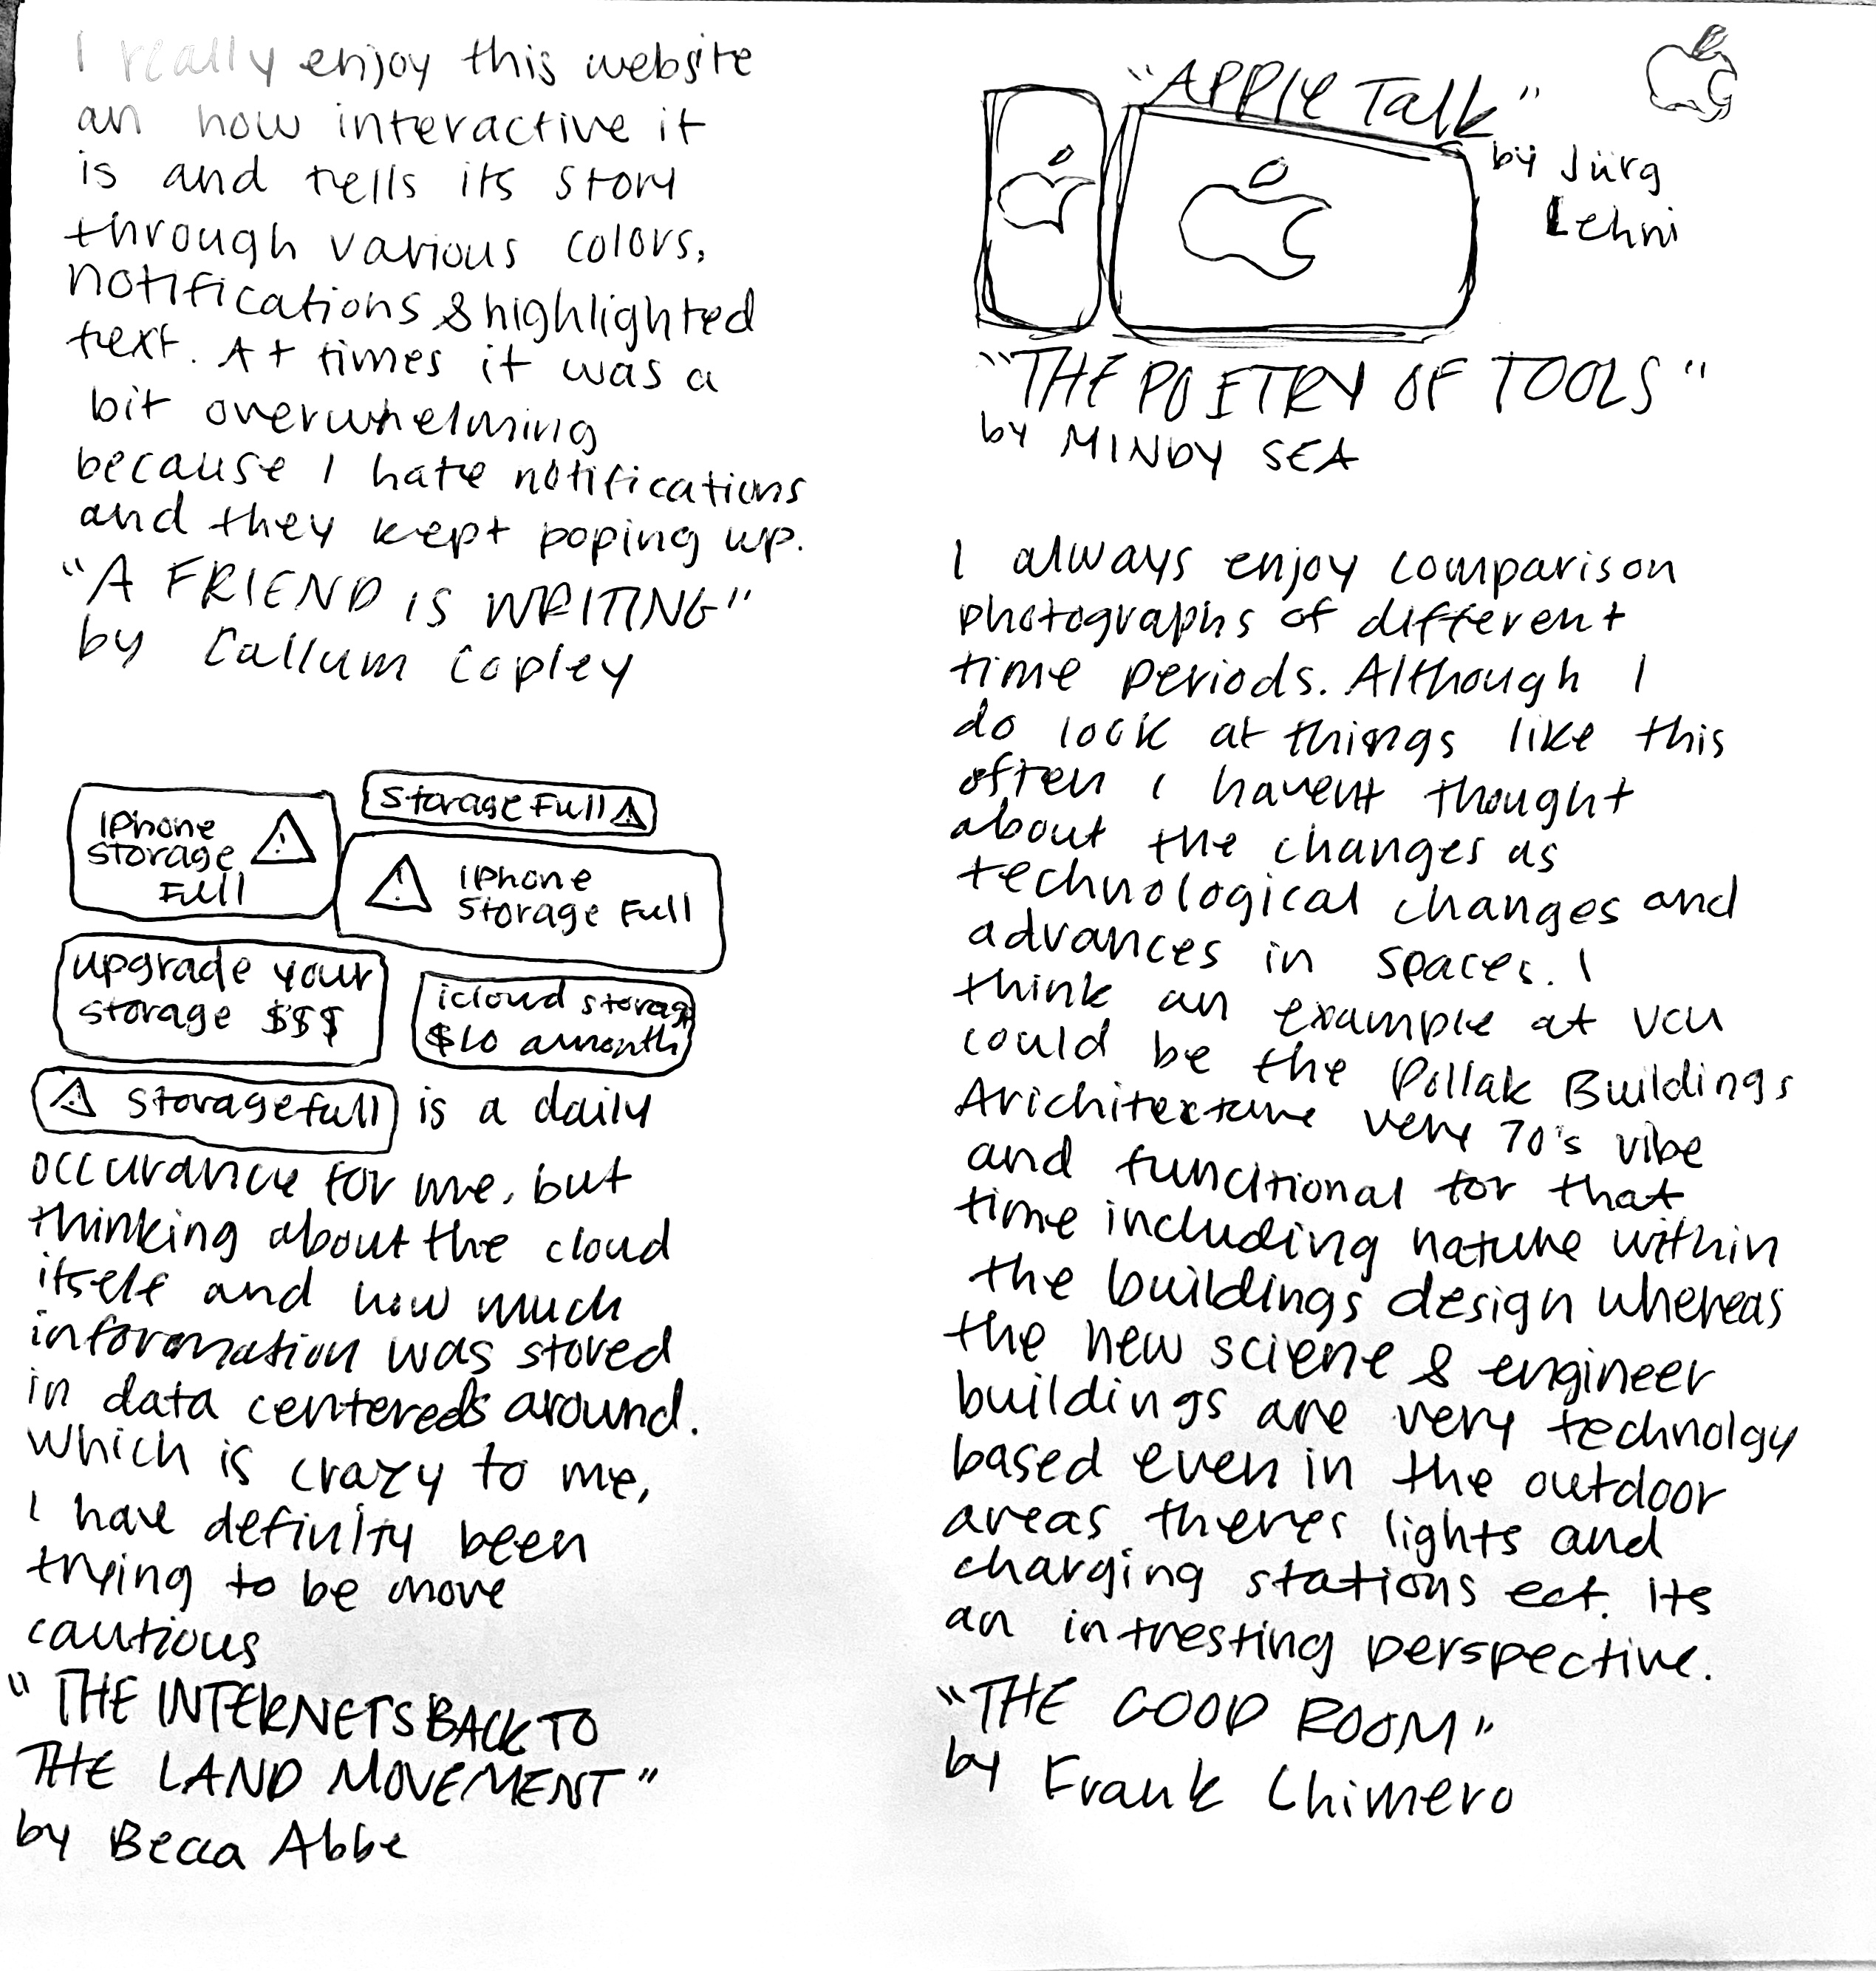 I really enjoy this website
an how interactive it
is and tells its story
through various colors,
notifications & highlighted
text. At times it was a
bit overwhelming
because I hate notifications
and they kept poping up.
"A FRIEND IS WRITING"
by Callum Copley
IPhone
Storage
Full
Storage Full
IPhone
Storage Full
upgrade your
storage $$$
icloud storage
$10 a month
Storage full is a daily
occurance for me, but
thinking about the cloud
itself and how much
information was stored
in data centereds around.
which is crazy to me,
I have definity been
trying to be more
cautious
"THE INTERNETS BACK TO
THE LAND MOVEMENT"
by Becca Abbe
"APPLE Talk"
by Jürg
Lehni
"THE POETRY OF TOOLS"
by MINDY SEA
I always enjoy comparison
photographs of different
time periods. Although I
do look at things like this
often I havent thought
about the changes as
technological changes and
advances in spaces. I
think an example at vcu
could be the Pollak Buildings
Arichitexture very 70's vibe
and funcitional for that
time including nature within
the buildings design whereas
the new sciene & engineer
buildings are very technolgy
based even in the outdoor
areas theres lights and
charging stations ect. Its
an intresting perspective.
"THE GOOD ROOM"
by Frank Chimero